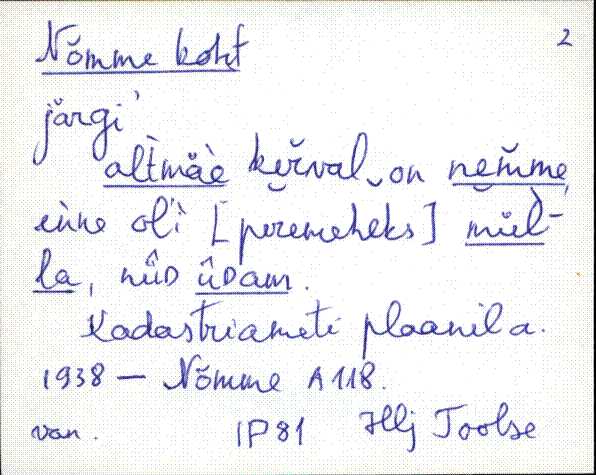 Nõmme koht 2
järgi
altmäe kerval, on nemme,
enne ol'i [peremeheks] mül-
la, nüD üDam.
Kadastriameti plaanil a.
1938 — Nõmme A 118.
van. IP 81 Hlj Toolse